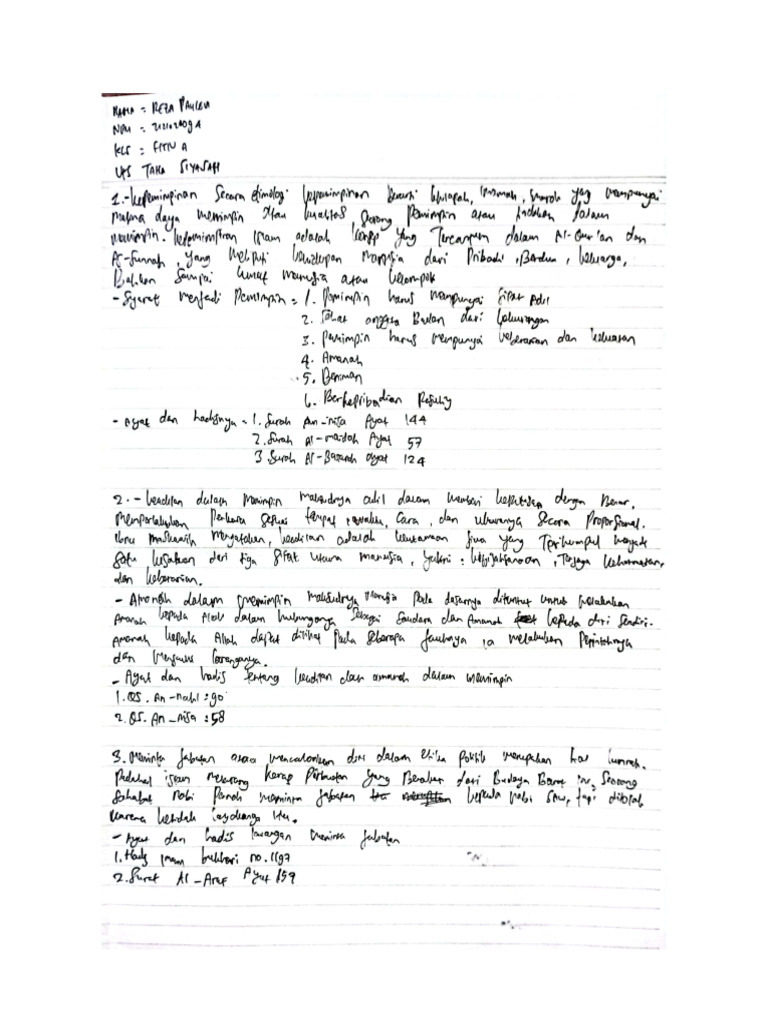 NAMA = REZA
NPM =
KLS = FITIV A
UTS TAHA SIYASAH
1.-kepemimpinan Secara etimologi kepemimpinan Berarti khilapah, imamah, yang mempunyai
makna daya memimpin atau kualitas, Seorang Pemimpin atau tindakan dalam
memimpin. kepemimpinan islam adalah konsep yang Tercantum dalam Al-Qur'an dan
As-Sunnah, yang meliputi kehidupan manusia dari Pribadi, Berdua, keluarga,
Bahkan Sampai umat manusia atau kelompok
- Syarat menjadi Pemimpin = 1. Pemimpin harus mempunyai Sifat Adil
2. Sehat anggota Badan dari kekurangan
3. Pemimpin harus mempunyai keberanian dan
4. Amanah
5. Beriman
6. Berkepribadian
- Ayat dan hadisnya = 1. Surah An-nisa Ayat 144
2. Surah Al-maidah Ayat 57
3 Surah Al-Baqarah ayat 124
2.- keadilan dalam memimpin maksudnya adil dalam memberi keputusan dengan Benar,
memperlakukan Perkara Sesuai tempat, waktu, Cara, dan ukurannya Secara Proporsional.
ibnu maskawaih menyatakan, keadilan adalah keutamaan jiwa yang Terhimpun
Satu kesatuan dari tiga Sifat utama manusia, yakni : kebijaksanaan, Terjaga kehormatan,
dan keberanian.
- Amanah dalam memimpin maksudnya manusia Pada dasarnya dituntut untuk melakukan
Amanah kepada Allah dalam hubungannya Sebagai Saudara dan Amanah kepada diri Sendiri.
Amanah kepada Allah dapat dilihat Pada Seberapa Jauhnya ia melakukan Perintahnya
dan menjauhi larangannya.
- Ayat dan hadis tentang keadilan dan amanah dalam memimpin
1. QS. An-nahl : 90
2. QS. An-nisa : 58
3. Meminta Jabatan atau mencalonkan diri dalam etika Politik merupakan hal lumrah.
Padahal islam melarang kerap Perbuatan yang Berakar dari Budaya Barat ini, Seorang
Sahabat nabi Pernah meminta Jabatan kepada nabi SAW, tapi ditolak
karena
- Ayat dan hadis larangan meminta Jabatan
1. Hadis imam bukhari no. 1197
2. Surat Al-Araf Ayat 159